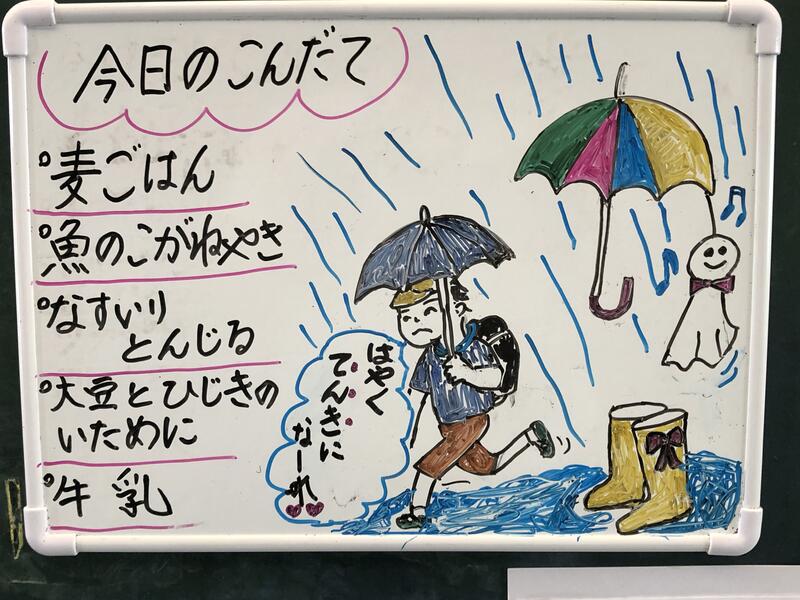 今日のこんだて
麦ごはん
魚のこがねやき
なすいり
とんじる
大豆とひじきの
いために
牛乳
はやく
てんきに
なーれ